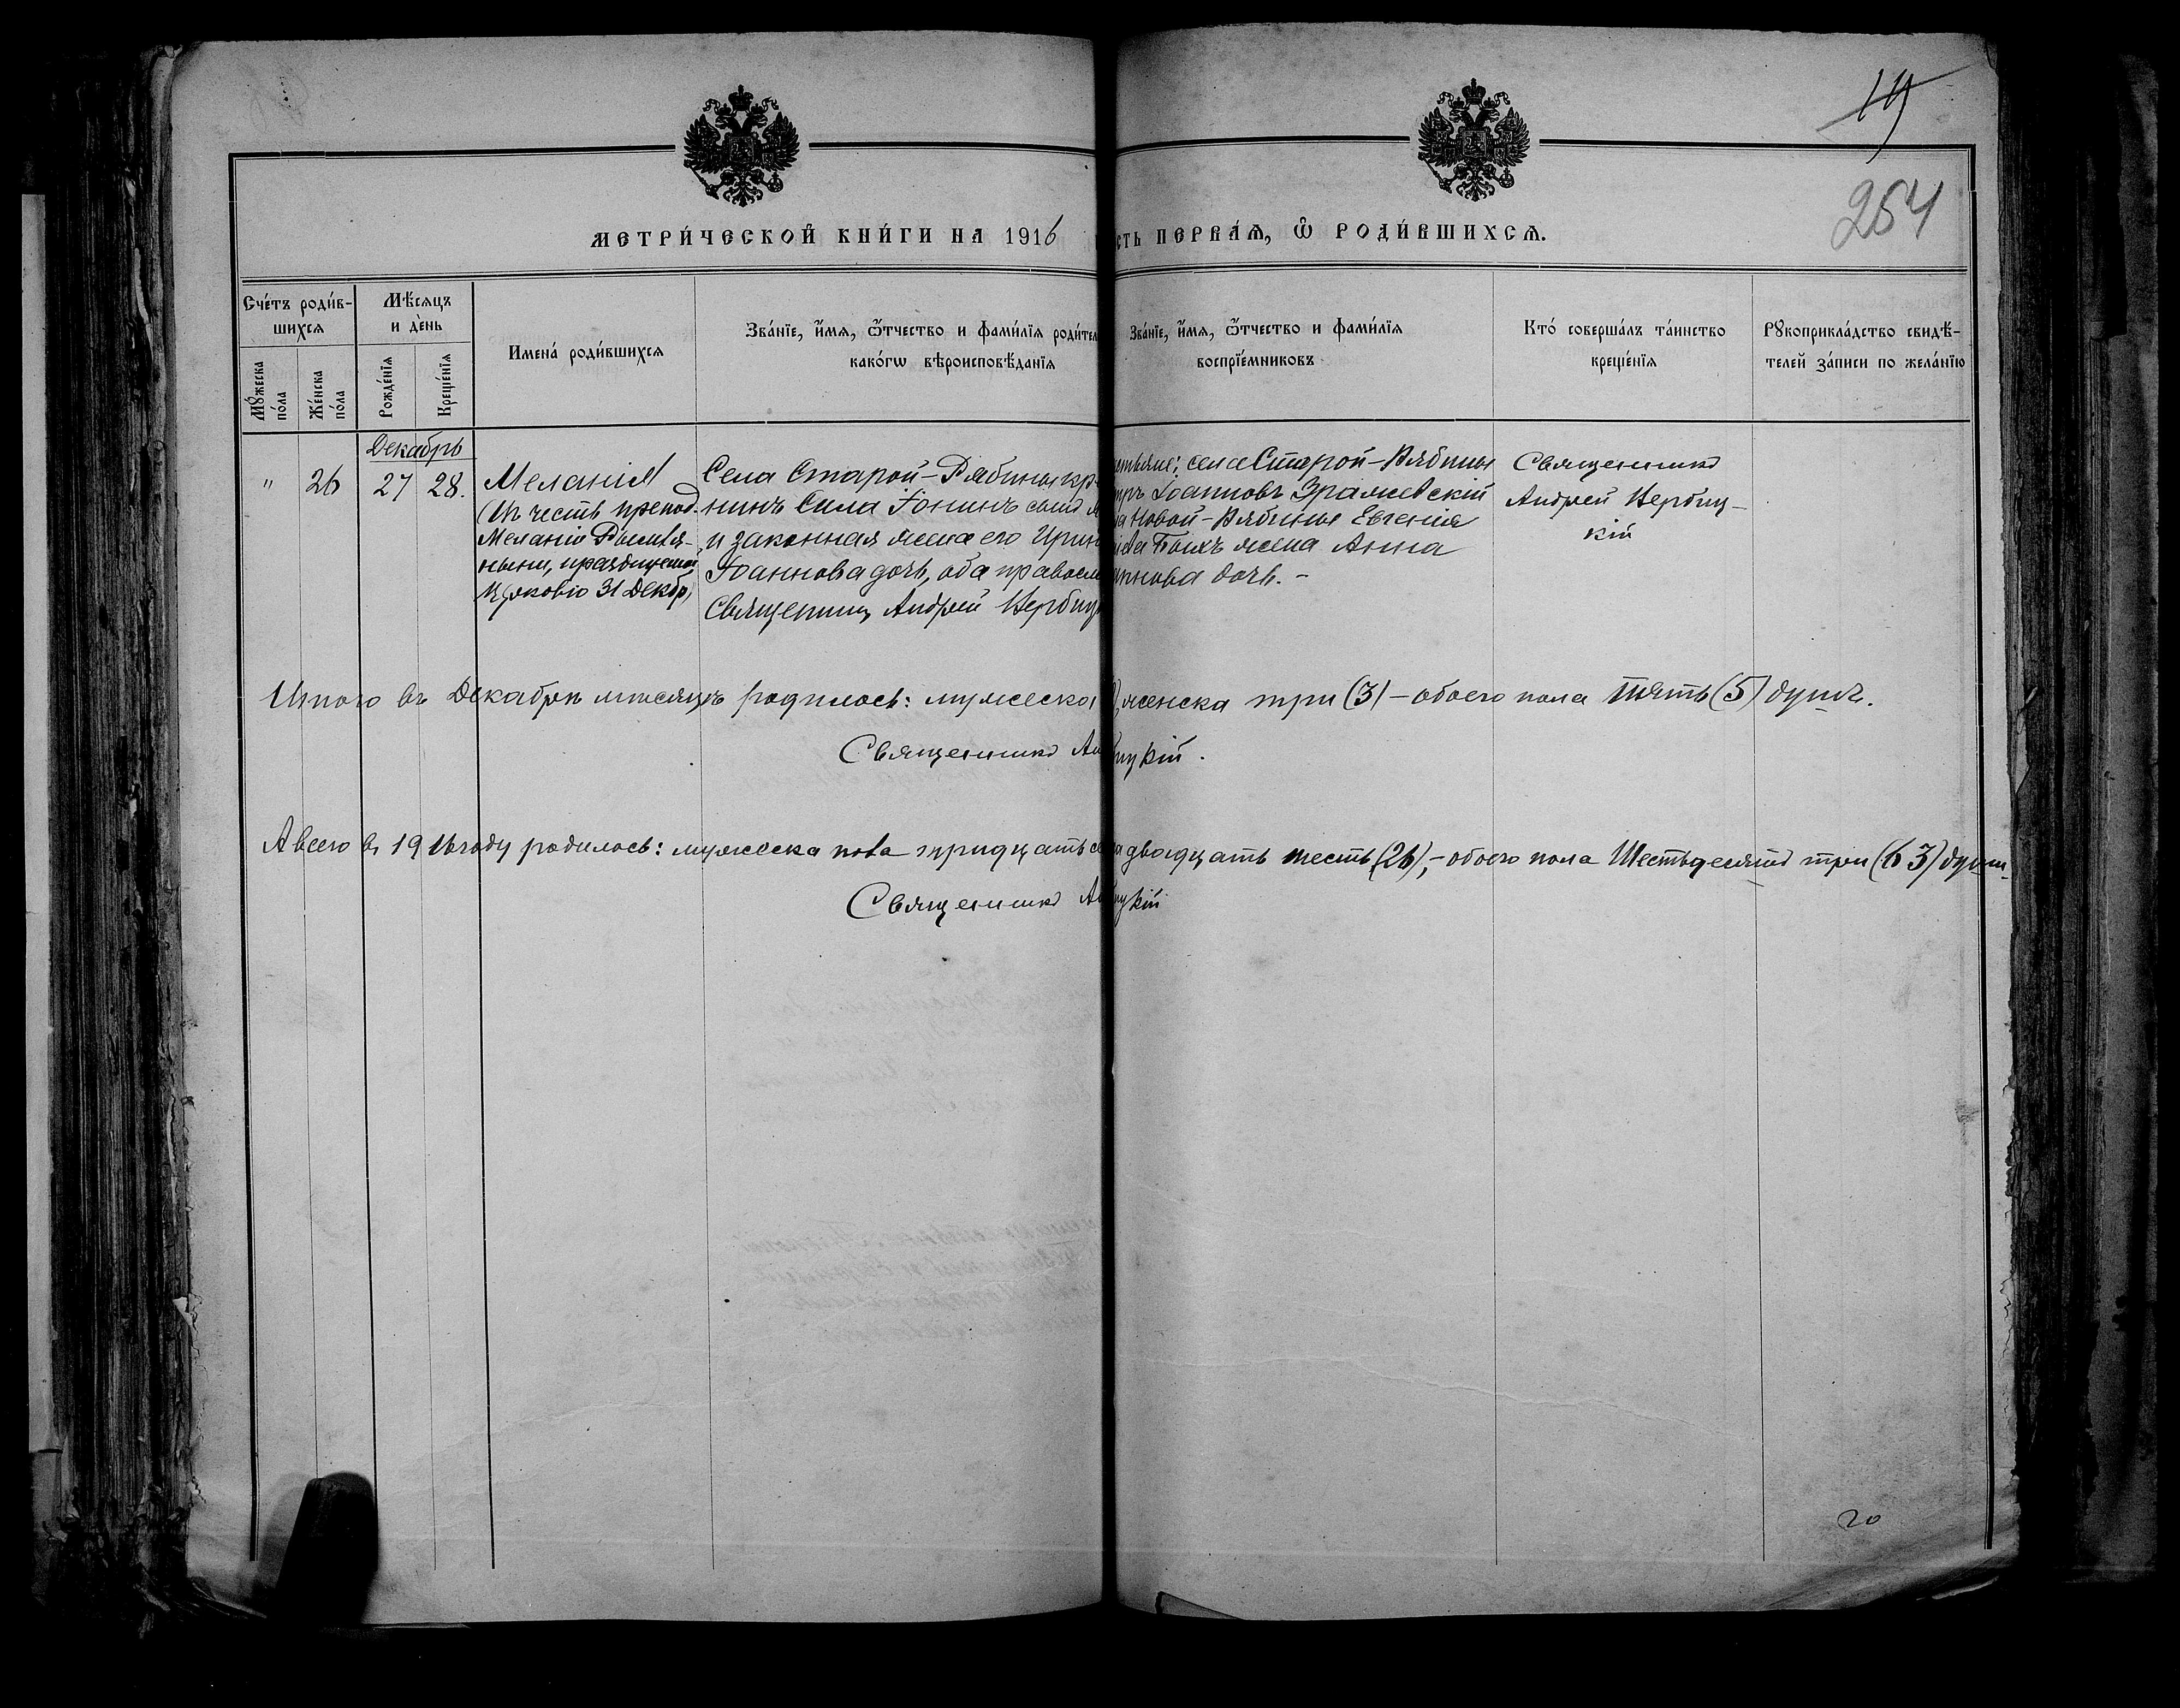 19
254
МЕТРИ́ЧЕСКОЙ КНИ́ГИ НА 1916
СТЬ ПЕРВА́Ѧ, Ѿ РОДИ́ВШИХСѦ.
Сче́тъ роди́в-
шихсѧ
Мꙋ́жеска по́ла
Же́нска по́ла
Мѣ́сѧцъ
и де́нь
Рожде́нїѧ
Креще́нїѧ
Имена́ роди́вшихсѧ
Зва́нїе, и҆́мѧ, ѻ҆́тчество и фами́лїѧ родител
како́гѡ вѣроисповѣ́данїѧ
Зва́нїе, и҆́мѧ, ѻ҆́тчество и фами́лїѧ
воспрїе́мниковъ
Кто́ соверша́лъ та́инство
креще́нїѧ
Рꙋкоприкла́дство свидѣ́-
телей за́писи по жела́нїю
Декабрь
" 26 27 28.
Меланія
(въ честь препод.
Меланіи Римля-
ныни, празднуемой
Церковію 31 Декбр)
Села Старой-Рябины кр
нинъ Сила Іонинъ сынъ
и законная жена его Ирин
Іоаннова дочь, оба правосл
Священникъ Андрей Верби
стьяне; села Старой-Рябины
тръ Іоанновъ
Новой-Рябины Евгенія
жена Анна
ннова дочь. -
Священникъ
Андрей Вербиц-
кій
Итого въ Декабрѣ мѣсяцѣ родилось: мужеска
женска три (3) - обоего пола пять (5) душъ.
Священникъ Ан
ицкій.
А всего въ 1916 году родилось: мужеска пола тридцать се
двадцать шесть (26), - обоего пола шестьдесятъ три (63) души.
Священникъ Ан
ицкій
20